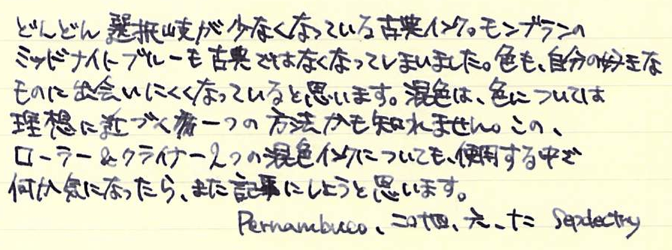 どんどん選択肢が少なくなっている古典インク。モンブランの
ミッドナイトブルーも古典ではなくなってしまいました。色も、自分の好きな
ものに出会いにくくなっていると思います。混色は、色については
理想に近づく唯一つの方法かも知れません。この、
ローラー&クライナー2つの混色インクについても、使用する中で
何か気になったら、また記事にしようと思います。
Pernambuco、二〇十四、六、十二